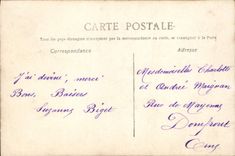 CARTE POSTALE
Tous les pays étrangers n'acceptent pas la correspondance au recto, se renseigner à la poste
Correspondance
Adresse
J'ai deviné, merci
Bons Baisers
Suzanne Biget
Mesdemoiselles Charlotte
et Andrée Maignan
Rue de Mayenne
Domfront
Orne